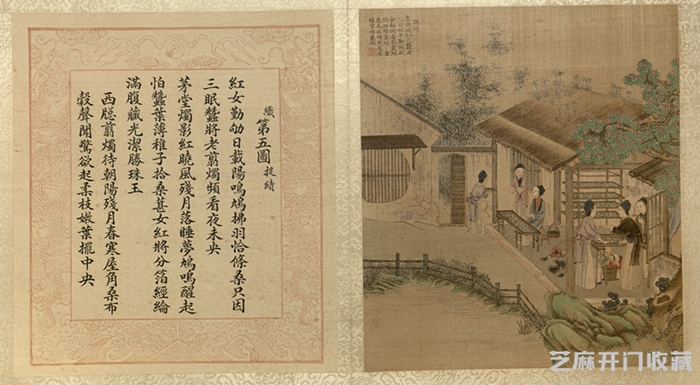 織 第五圖 捉績
紅女勤劬日載陽鳴鳩拂羽恰條桑只因
三眠蠶將老翦燭頻看夜未央
茅堂燭影紅曉風殘月落睡夢鳩鳴醒起
怕蠶葉薄稚子拾桑葚女紅將分箔經綸
滿腹藏光潔勝珠玉
西牕翦燭待朝陽殘月春寒屋角桑布
穀聲聞驚欲起柔枝嫩葉擺中央
芝麻开门收藏